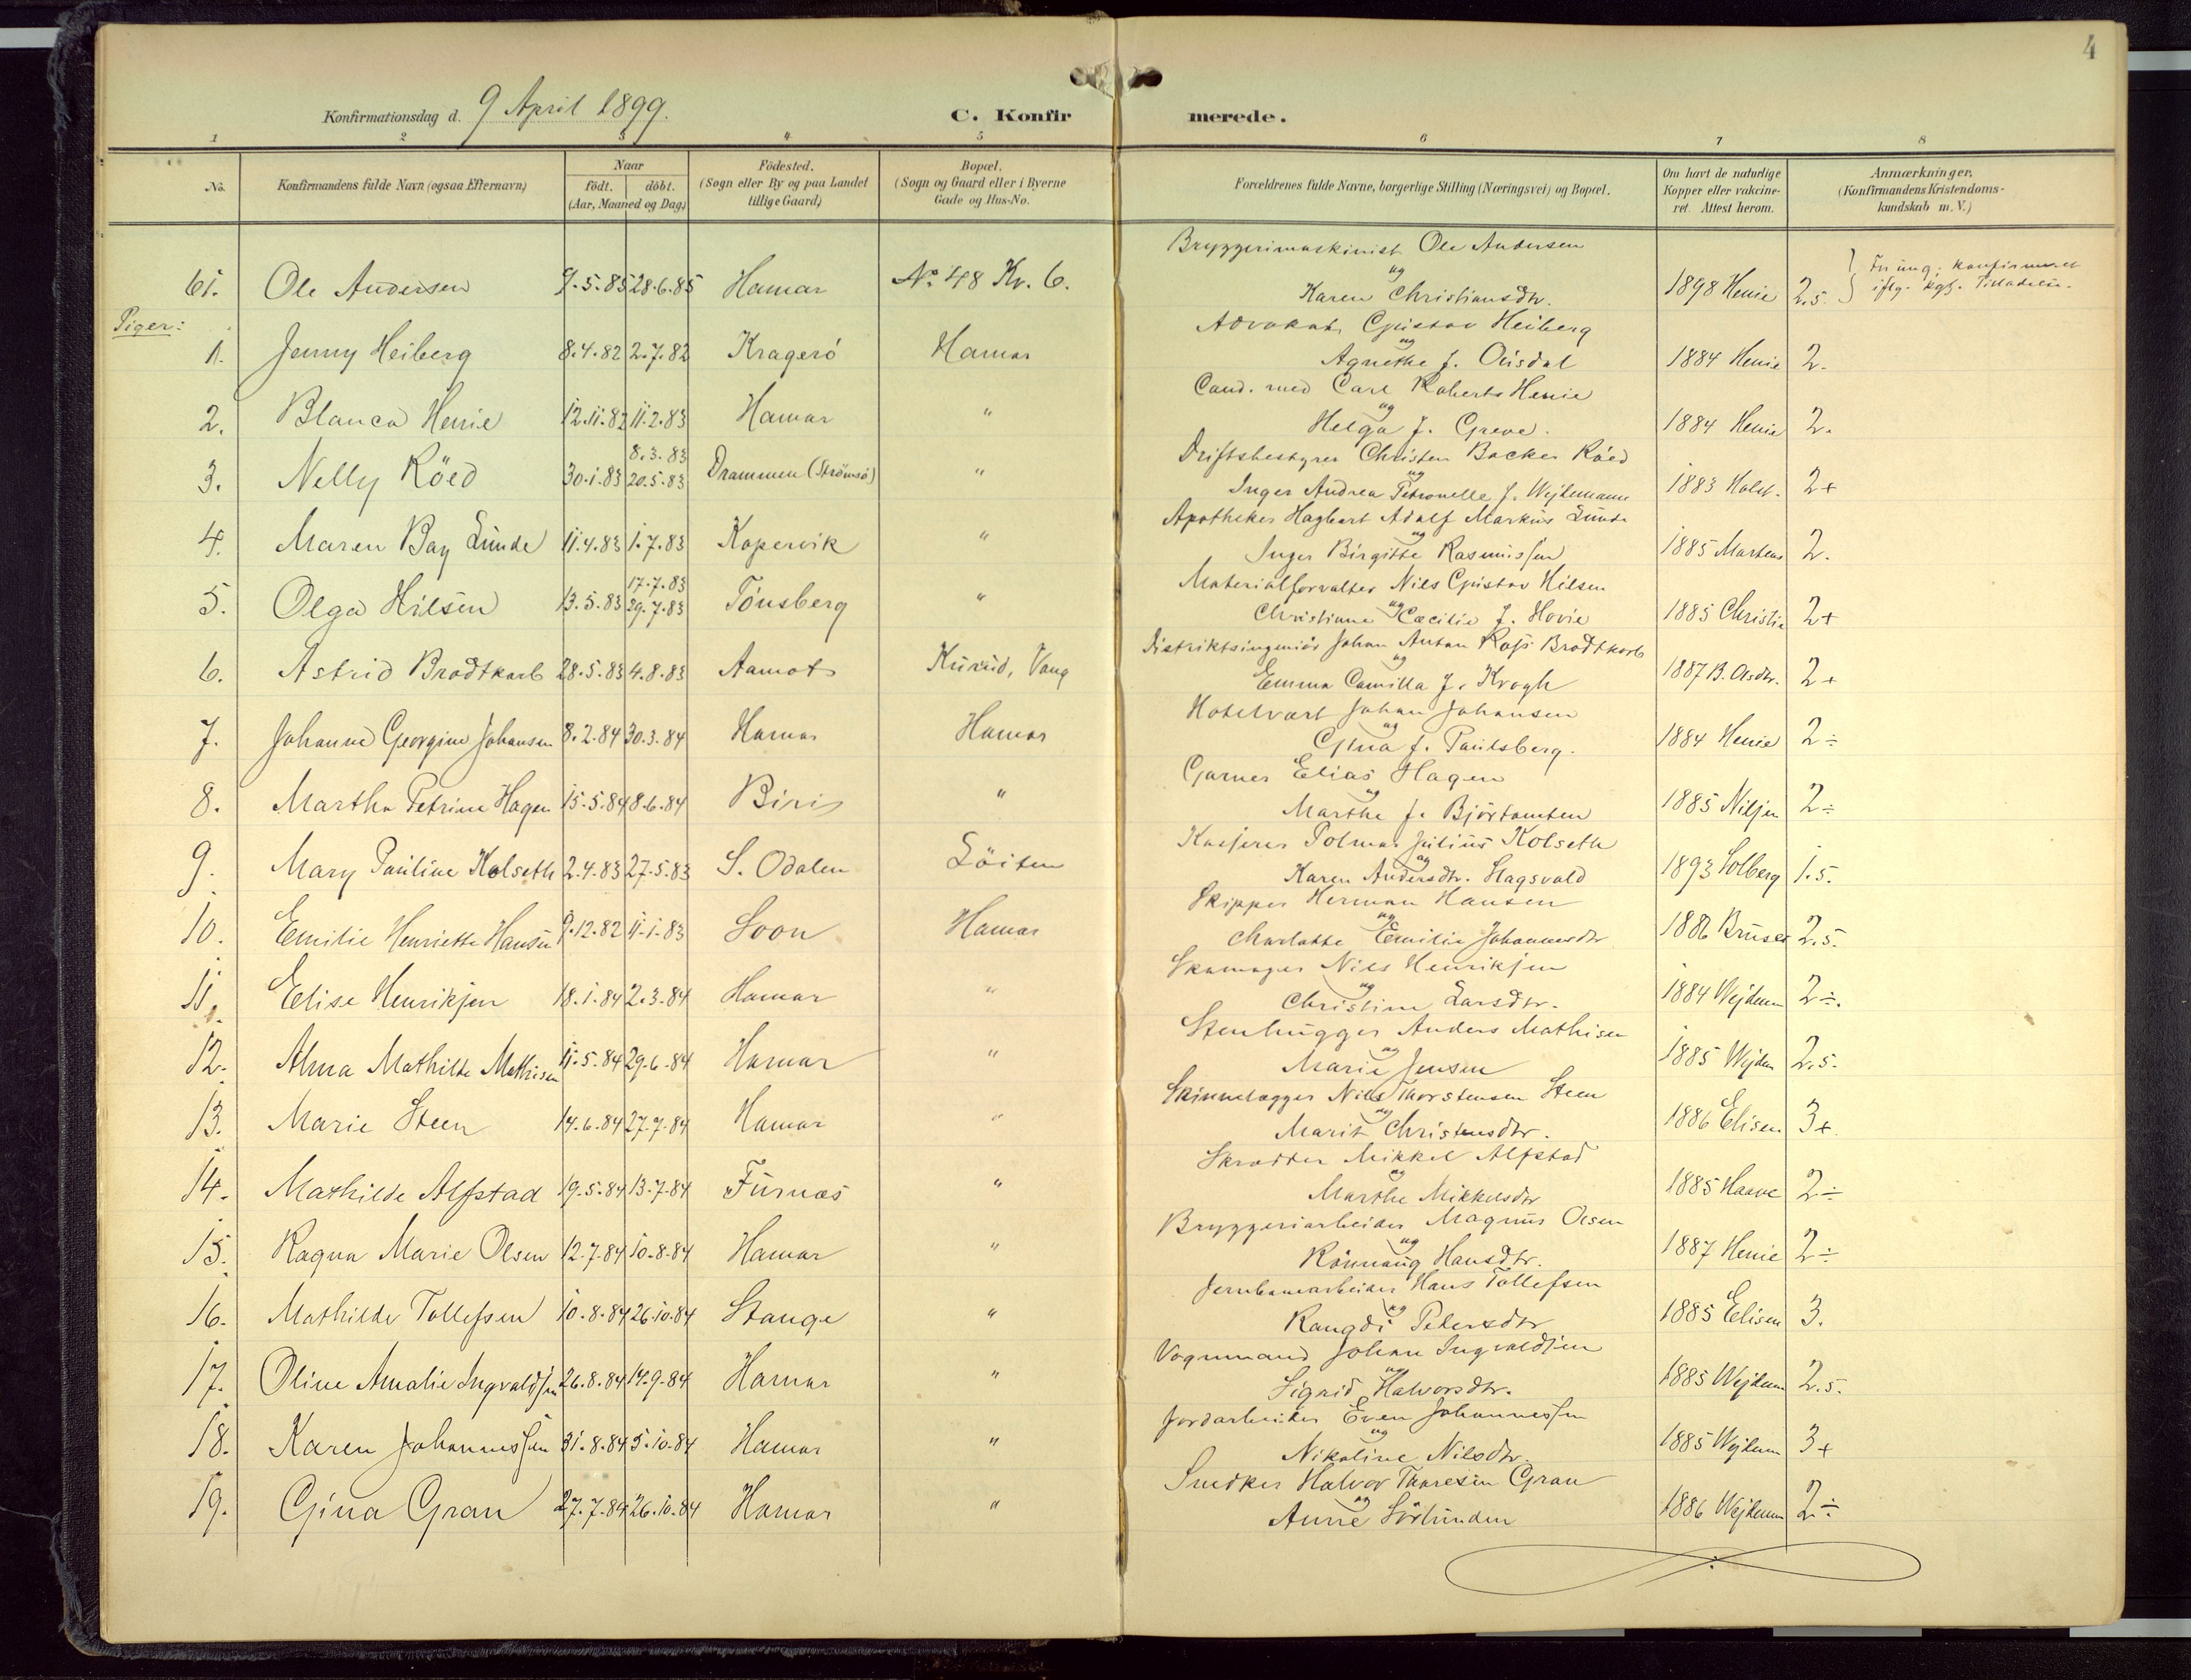 4
Konfirmationsdag d. 9 April 1899. C. Konfir merede.
1 2 3 4 5 6 7 8
No. Konfirmandens fulde Navn (ogsaa Efternavn) Naar födt. döbt. (Aar, Maaned og Dag.) Födested. (Sogn eller By og paa Landet tillige Gaard) Bopæl. (Sogn og Gaard eller i Byerne Gade og Hus-No. Forældrenes fulde Navne, borgerlige Stilling (Næringsvei) og Bopæl. Om havt de naturlige Kopper eller vakcineret. Attest herom. Anmærkninger. (Konfirmandens Kristendomskundskab m. V.)
Bryggerimaskinist Ole Andersen
61. Ole Andersen 9.5.85 28.6.85 Hamar No. 48 Kv. 6. og Karen Christiansdtr. 1898 Henie 2.5 For ung; konfirmeret iflg. kgl. Tilladelse.
Piger:
Advokat Gustav Heiberg
1. Jenny Heiberg 8.4.82 2.7.82 Kragerö Hamar og Agnethe f. Ousdal 1884 Henie 2.
Cand. med Carl Roberts Henie
2. Blanca Henie 12.11.82 11.2.83 Hamar " og Helga f. Greve. 1884 Henie 2.
Driftsbestyrer Christen Backer Röed
8.3.83
3. Nelly Röed 30.1.83 20.5.83 Drammen (Strömsö) " og Inger Andrea Petronelle f. Wejdemann 1883 Holst. 2+
Apotheker Hagbart Adolf Markus Lunde
4. Maren Bay Lunde 11.4.83 1.7.83 Kopervik " og Inger Birgitte Rasmussen 1885 Martens 2.
Materialforvalter Nils Gustav Hilsen
17.7.83
5. Olga Hilsen 13.5.83 29.7.83 Tönsberg " Christiane og Cæcilie f. Hovie 1885 Christie 2+
Distriktsingeniör Johan Anton Ross Brodtkorb
6. Astrid Brodtkorb 28.5.83 4.8.83 Aamot Kurud, Vang og Emma Camilla f. Krogh 1887 B. Olsdtr. 2+
Hotelvært Johan Johansen
7. Johanne Georgine Johansen 8.2.84 30.3.84 Hamar Hamar og Gina f. Paulsberg. 1884 Henie 2÷
Garver Elias Hagen
8. Martha Petrine Hagen 15.5.84 8.6.84 Biri " og Marthe f. Björtomten 1885 Niljen 2÷
Kasserer Polmar Julius Kolseth
9. Mary Pauline Kolseth 2.4.83 27.5.83 S. Odalen Löiten og Karen Andersdtr. Slagsvold 1893 Solberg 1.5.
Skipper Herman Hansen
10. Emilie Henriette Hansen 9.12.82 11.1.83 Soon Hamar og Charlotte Emilie Johannesdtr 1886 Bruser 2.5.
Skomager Nils Henriksen
11. Elise Henriksen 18.1.84 2.3.84 Hamar " og Christine Larsdtr. 1884 Wejdem 2÷.
Stenhugger Anders Mathisen
12. Alma Mathilde Mathisen 11.5.84 29.6.84 Hamar " og Marie Jensen 1885 Wejdem 2.5.
Skinnelægger Nils Thorstensen Steen
13. Marie Steen 14.6.84 27.7.84 Hamar " og Marit Christensdtr. 1886 Elisen 3+
Skrædder Mikkel Alfstad
14. Mathilde Alfstad 19.5.84 13.7.84 Furnæs " og Marthe Mikkelsdtr 1885 Haave 2÷
Bryggeriarbeider Magnus Olsen
15. Ragna Marie Olsen 12.7.84 10.8.84 Hamar " og Rönnaug Hansdtr. 1887 Henie 2÷
Jernbanearbeider Hans Tollefsen
16. Mathilde Tollefsen 10.8.84 26.10.84 Stange " og Rangdi Petersdtr 1885 Elisen 3.
Vognmand Johan Ingvaldsen
17. Oline Amalie Ingvaldsen 26.8.84 14.9.84 Hamar " og Sigrid Halvorsdtr. 1885 Wejdem 2.5.
Jordarbeider Even Johannessen
18. Karen Johannessen 31.8.84 5.10.84 Hamar " og Nikoline Nilsdtr. 1885 Wejdem 3+
Snedker Halvor Thoresen Gran
19. Gina Gran 27.7.84 26.10.84 Hamar " og Anne Sörlunden 1886 Wejdem 2÷